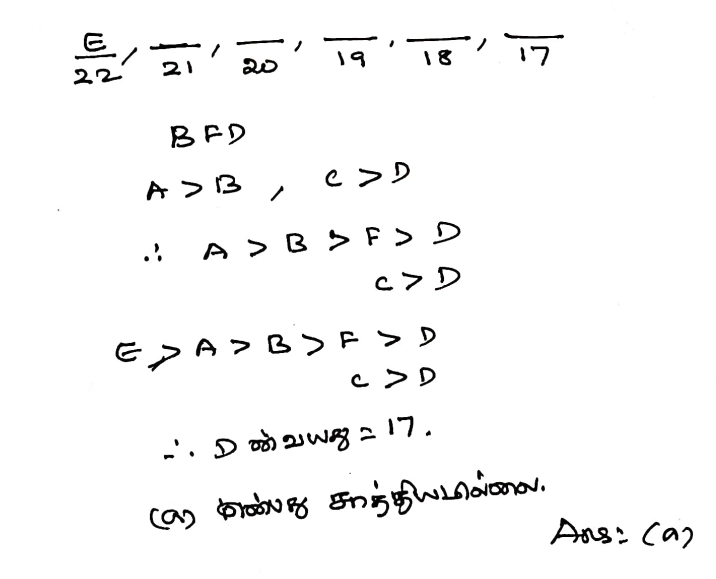 E/22, __/21, __/20, __/19, __/18, __/17
B F D
A > B , C > D
∴ A > B > F > D
C > D
E > A > B > F > D
C > D
∴ D ன் வயது = 17.
(a) என்பது சாத்தியமில்லை.
Ans: (a)